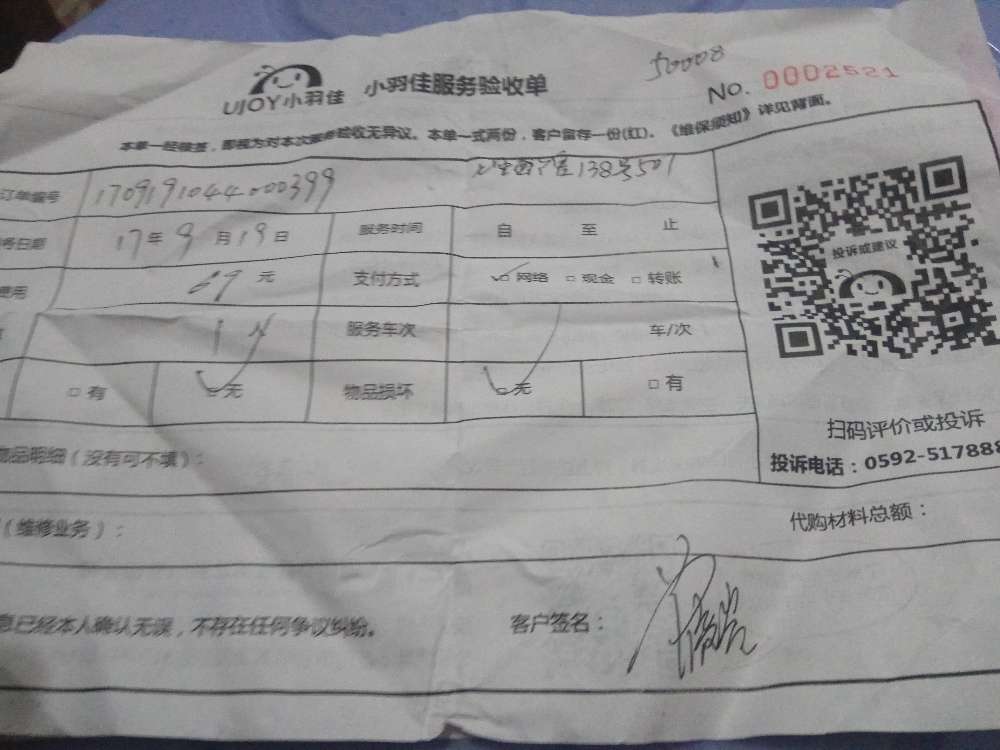 50008
UJOY小羽佳 小羽佳服务验收单 No. 0002521
本单一经签署，即视为对本次服务验收无异议。本单一式两份，客户留存一份(红)。《维保须知》详见背面。
订单编号 170919104400399 138号501
务日期 17年9月19日 服务时间 自 至 止
费用 69元 支付方式 ☑网络 □现金 □转账
1人 服务车次 车/次
□有 ☑无 物品损坏 ☑无 □有
投诉或建议
扫码评价或投诉
投诉电话：0592-517888
物品明细（没有可不填）：
（维修业务）： 代购材料总额：
息已经本人确认无误，不存在任何争议纠纷。 客户签名：